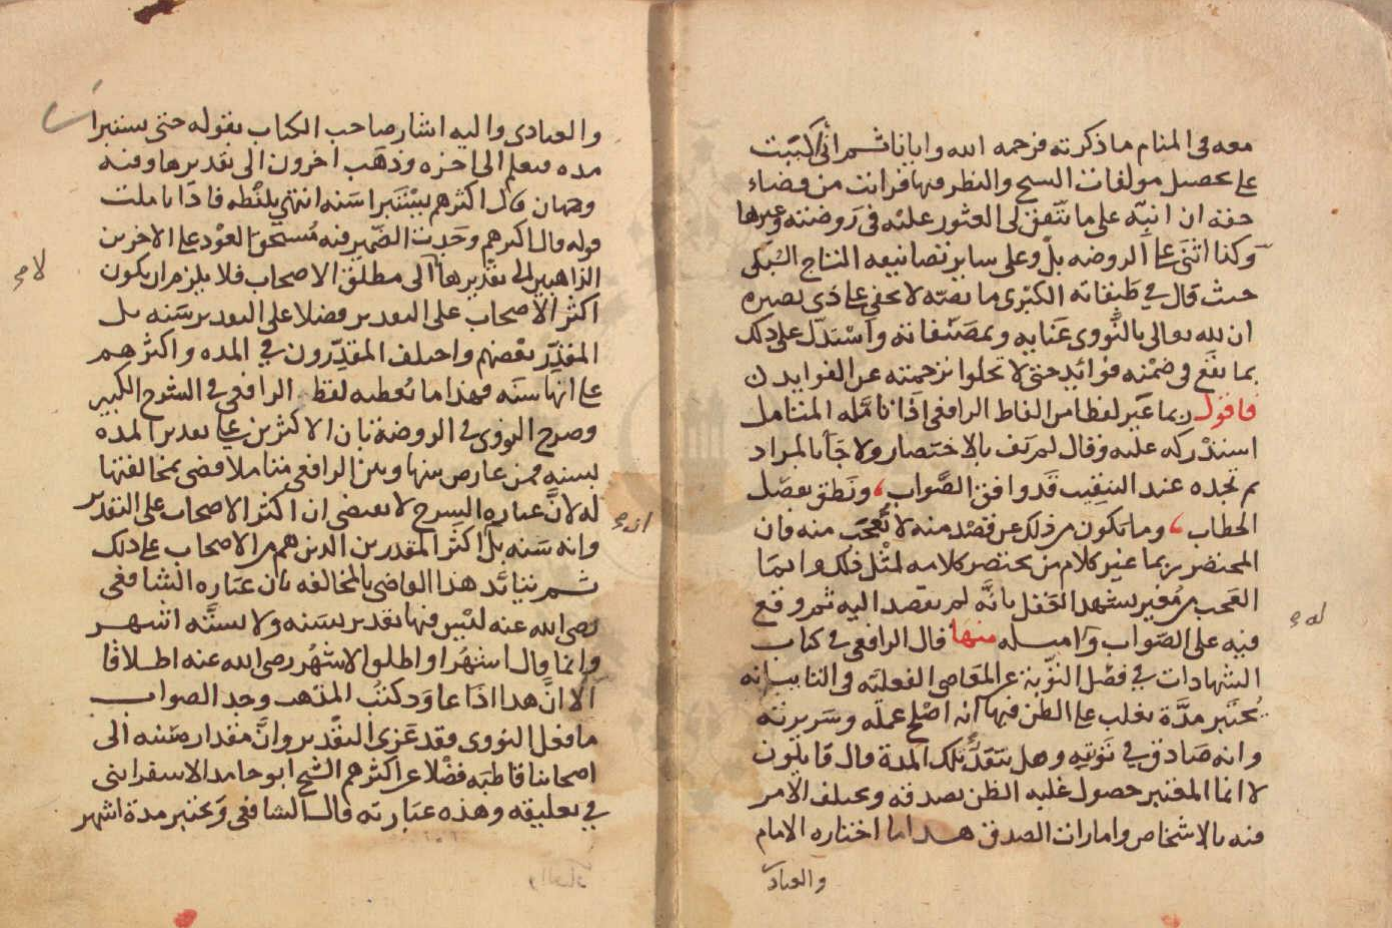 معه في المنام ما ذكرته فرحمه الله وايانا ثم اني اكببت
على تحصيل مولفات الشيخ والنظر فيها فرايت من قضاء
حقه ان انبه على ما يتفق لي العثور عليه في روضته وغيرها
وكذا اثنى على الروضه بل وعلى ساير تصانيفه التاج السبكي
حيث قال في طبقاته الكبرى ما نصه لا يخفى على ذى بصيره
ان لله تعالى بالنووى عنايه وبمصنفاته واستدل على ذلك
بما يقع في ضمنه فوائد حتى لا تخلوا ترجمته عن الفوايد
فاقول ربما غير لفظا من الفاظ الرافعى اذا تامله المتامل
استدركه عليه وقال لم يف بالاختصار ولا جا بالمراد
ثم نجده عند التنقيب قد وافق الصواب ونطق بفصل
الخطاب وما يكون من ذلك عن قصد منه لا يعجب منه فان
المختصر ربما غير كلام من يختصر كلامه لمثل ذلك وانما
العجب من تغيير يشهد العقل بانه لم يقصد اليه ثم وقع
فيه على الصواب وامثله منها قال الرافعى في كتاب
الشهادات في فصل التوبة عن المعاصى الفعليه في التايب انه
يختبر مدة يغلب على الظن فيها انه اصلح عمله وسريرته
وانه صادق في توبته وهل تتقدر تلك المدة قال قايلون
لا انما المعتبر حصول غلبه الظن بصدقه ويختلف الامر
فيه بالاشخاص وامارات الصدق هذا ما اختاره الامام
والعباد
له
والعبادى واليه اشار صاحب الكتاب بقوله حتى يستبرا
مده فيعلم الى اخره وذهب اخرون الى تقديرها وفيه
وجهان قال اكثرهم يستبرا سنه انتهى بلفظه فاذا تاملت
قوله قال اكثرهم وجدت الضمير فيه مستحق العود على الاخرين
الذاهبين الى تقديرها الى مطلق الاصحاب فلا يلزم ان يكون
اكثر الاصحاب على التقدير فضلا على التقدير بسنه بل
المقدر بعضهم واختلف المقدرون في المده واكثرهم
على انها سنه فهذا ما يعطيه لفظ الرافعى في الشرح الكبير
وصرح النووى في الروضة بان الاكثرين على تقدير المده
بسنه فمن عارض بينها وبين الرافعى متاملا قضى بمخالفتها
له لان عباره الشرح لا تقتضى ان اكثر الاصحاب على التقدير
وانه سنه بل اكثر المقدرين الذين هم من الاصحاب على ذلك
ثم يتايد هذا القاضى بالمخالفه بان عباره الشافعى
رضى الله عنه ليس فيها تقدير بسنه ولا بستة اشهر
وانما قال اشهرا واطلق الاشهر رضى الله عنه اطلاقا
الا ان هذا اذا عاود كتب المذهب وجد الصواب
ما فعل النووى فقد عزى التقدير وان مقداره سنه الى
اصحابنا قاطبه فضلا عن اكثرهم الشيخ ابو حامد الاسفراينى
في تعليقه وهذه عبارته قال الشافعى ويختبر مدة اشهر